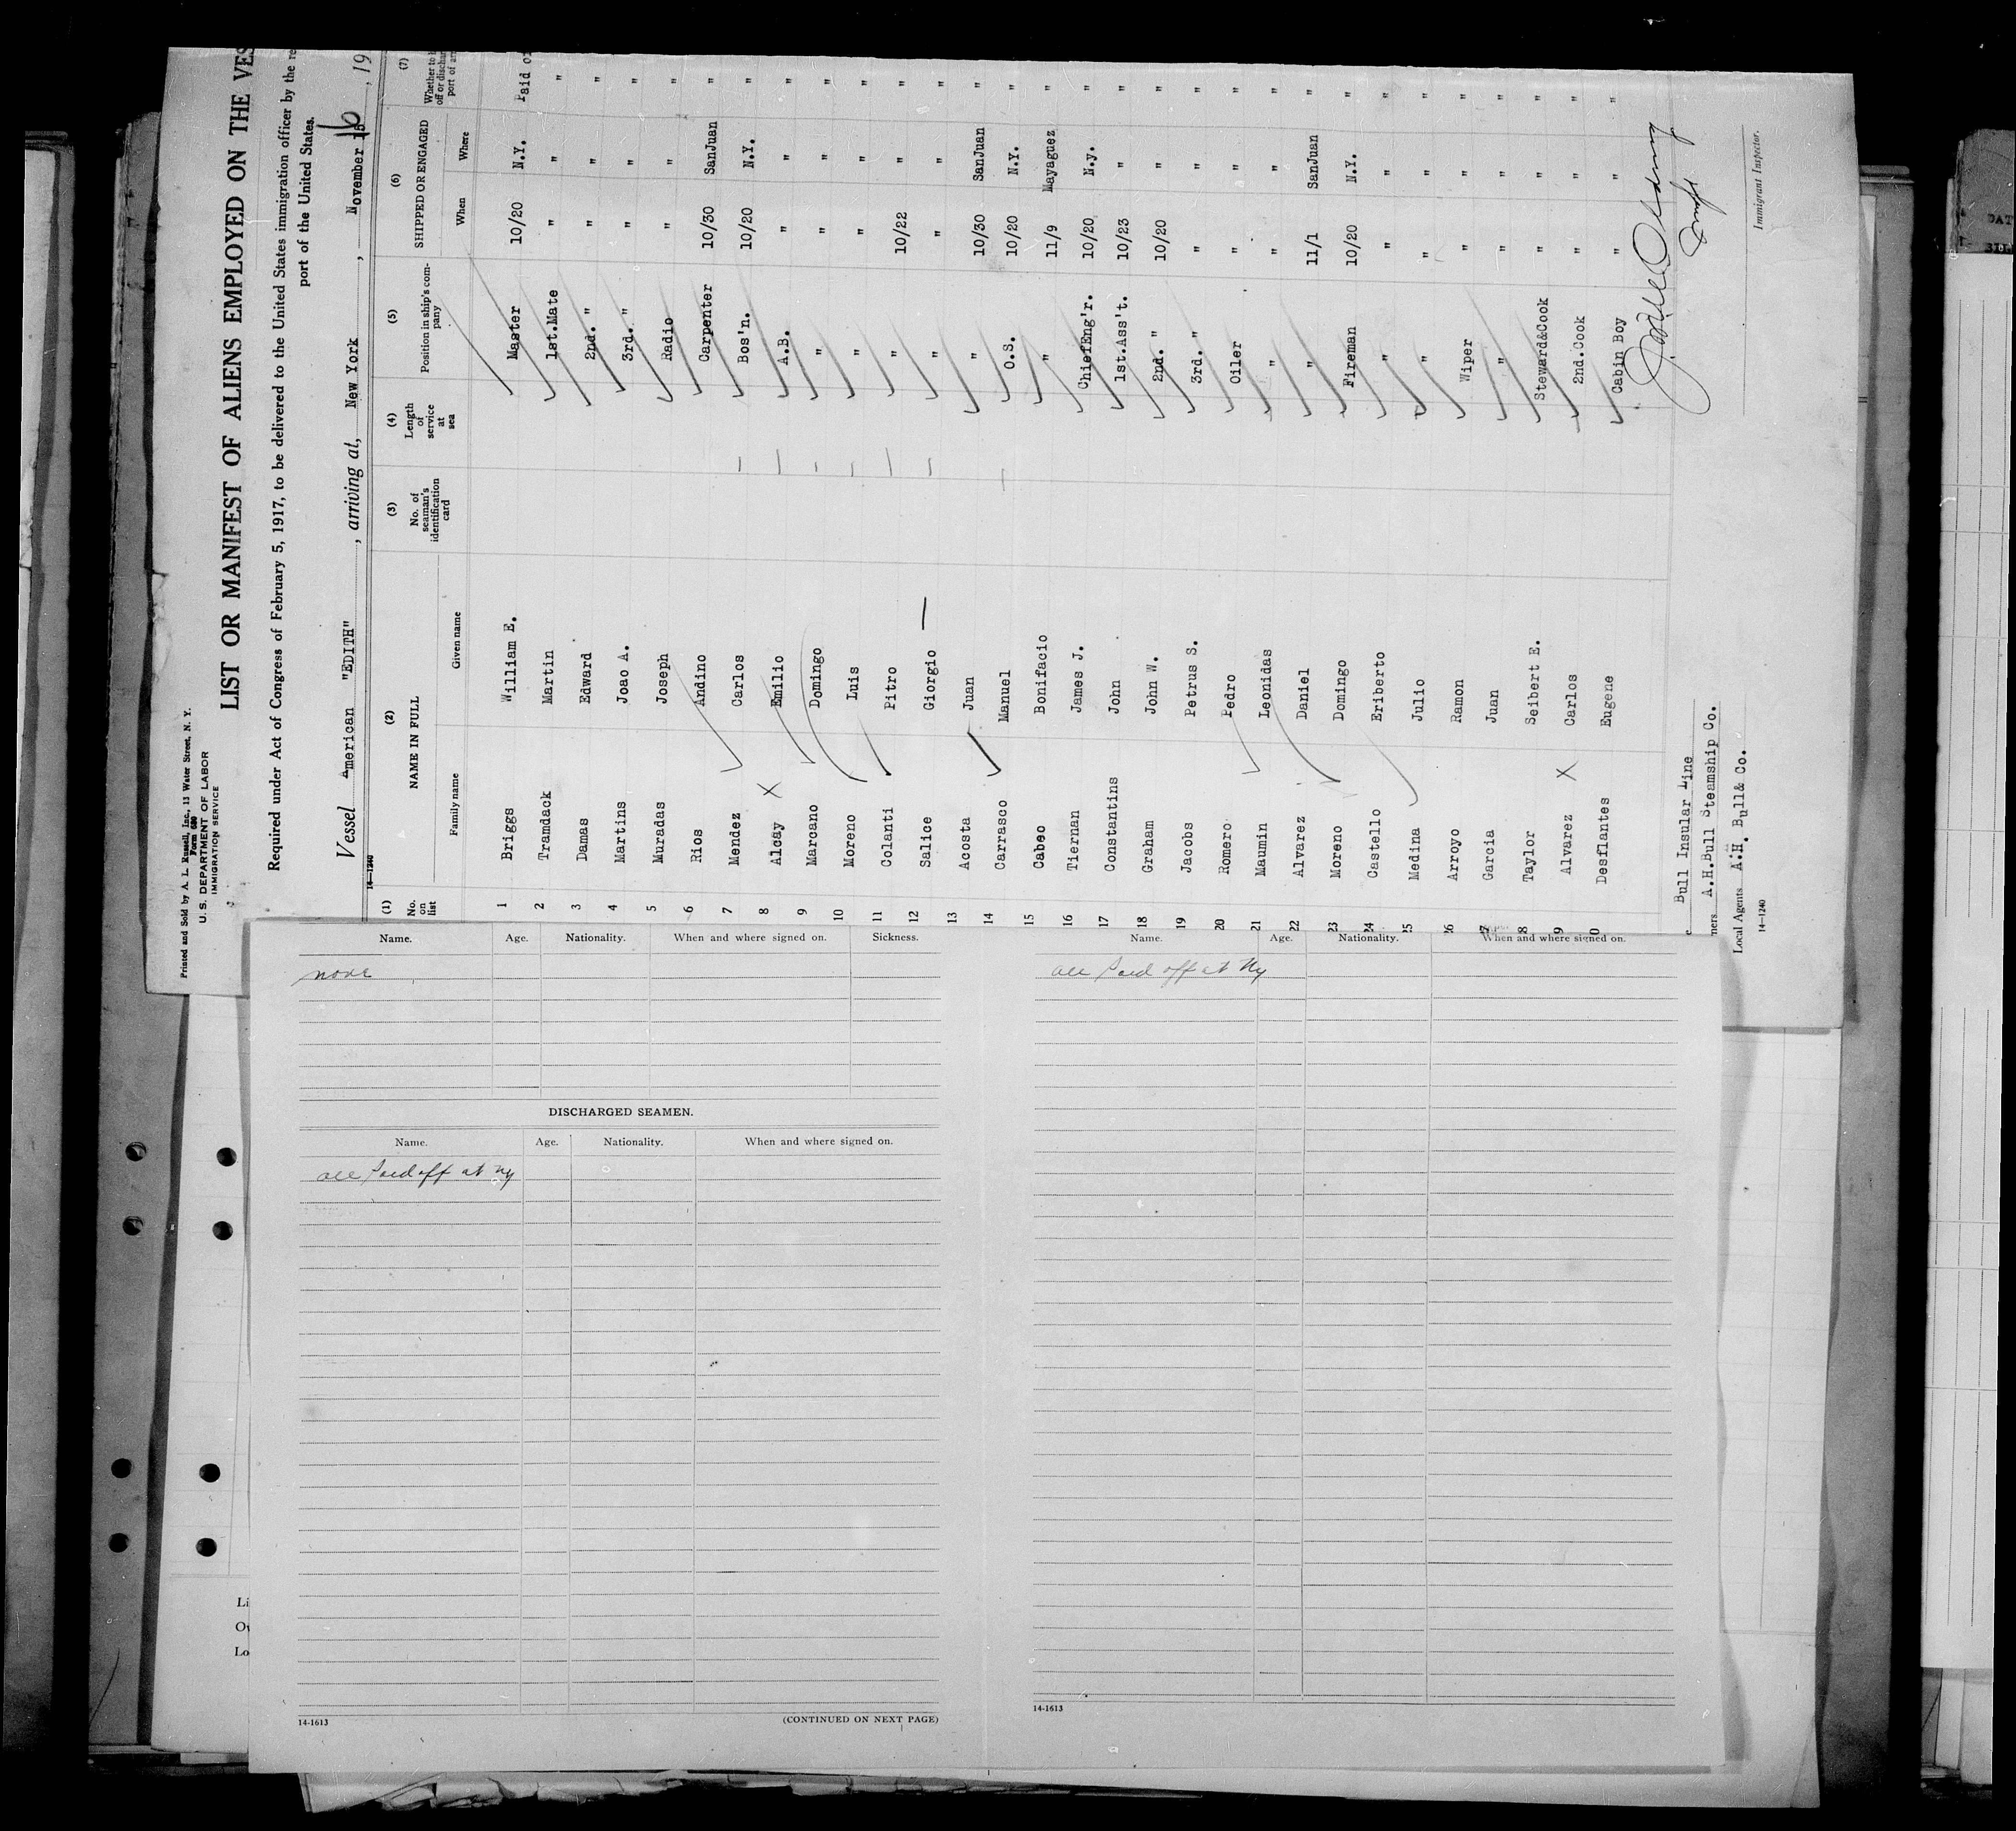 Printed and Sold by A. L. Russell, Inc., 13 Water Street, N. Y.
Form 680
U. S. DEPARTMENT OF LABOR
IMMIGRATION SERVICE
LIST OR MANIFEST OF ALIENS EMPLOYED ON THE VES
Required under Act of Congress of February 5, 1917, to be delivered to the United States immigration officer by the re
port of the United States.
Vessel American "EDITH", arriving at, New York, November 16, 19
14-1240
(1) (2) (3) (4) (5) (6) (7)
No. on list NAME IN FULL No. of seaman's identification card Length of service at sea Position in ship's company SHIPPED OR ENGAGED Whether to off or dischar port of
Family name Given name When Where
1 Briggs William E. Master 10/20 N.Y. Paid o
2 Tramdack Martin 1st.Mate " " "
3 Damas Edward 2nd. " " " "
4 Martins Joao A. 3rd. " " " "
5 Muradas Joseph Radio " " "
6 Rios Andino Carpenter 10/30 SanJuan "
7 Mendez Carlos Bos'n. 10/20 N.Y. "
8 Alcay X Emilio A.B. " " "
9 Marcano Domingo " " " "
10 Moreno Luis " " " "
11 Colanti Pitro " 10/22 " "
12 Salice Giorgio — " " " "
13 Acosta Juan " 10/30 SanJuan "
14 Carrasco Manuel O.S. 10/20 N.Y. "
15 Cabeo Bonifacio " 11/9 Mayaguez "
16 Tiernan James J. ChiefEng'r. 10/20 N.y. "
17 Constantins John 1st.Ass't. 10/23 " "
18 Graham John W. 2nd. " 10/20 " "
19 Jacobs Petrus S. 3rd. " " " "
20 Romero Pedro Oiler " " "
21 Maumin Leonidas " " " "
22 Alvarez Daniel " 11/1 SanJuan "
23 Moreno Domingo Fireman 10/20 N.Y. "
24 Castello Eriberto " " " "
25 Medina Julio " " " "
26 Arroyo Ramon Wiper " " "
27 Garcia Juan " " " "
8 Taylor Seibert E. Steward&Cook " " "
9 Alvarez X Carlos 2nd.Cook " " "
0 Desflantes Eugene Cabin Boy " " "
Immigrant Inspector.
Bull Insular Line
ners A.H.Bull Steamship Co.
Local Agents A.H. Bull& Co.
14-1240
Name. Age. Nationality. When and where signed on. Sickness.
none
DISCHARGED SEAMEN.
Name. Age. Nationality. When and where signed on.
all Paid off at Ny
14-1613
(CONTINUED ON NEXT PAGE)
Name. Age. Nationality. When and where signed on.
all Paid off at Ny
14-1613
Li
Ow
Lo